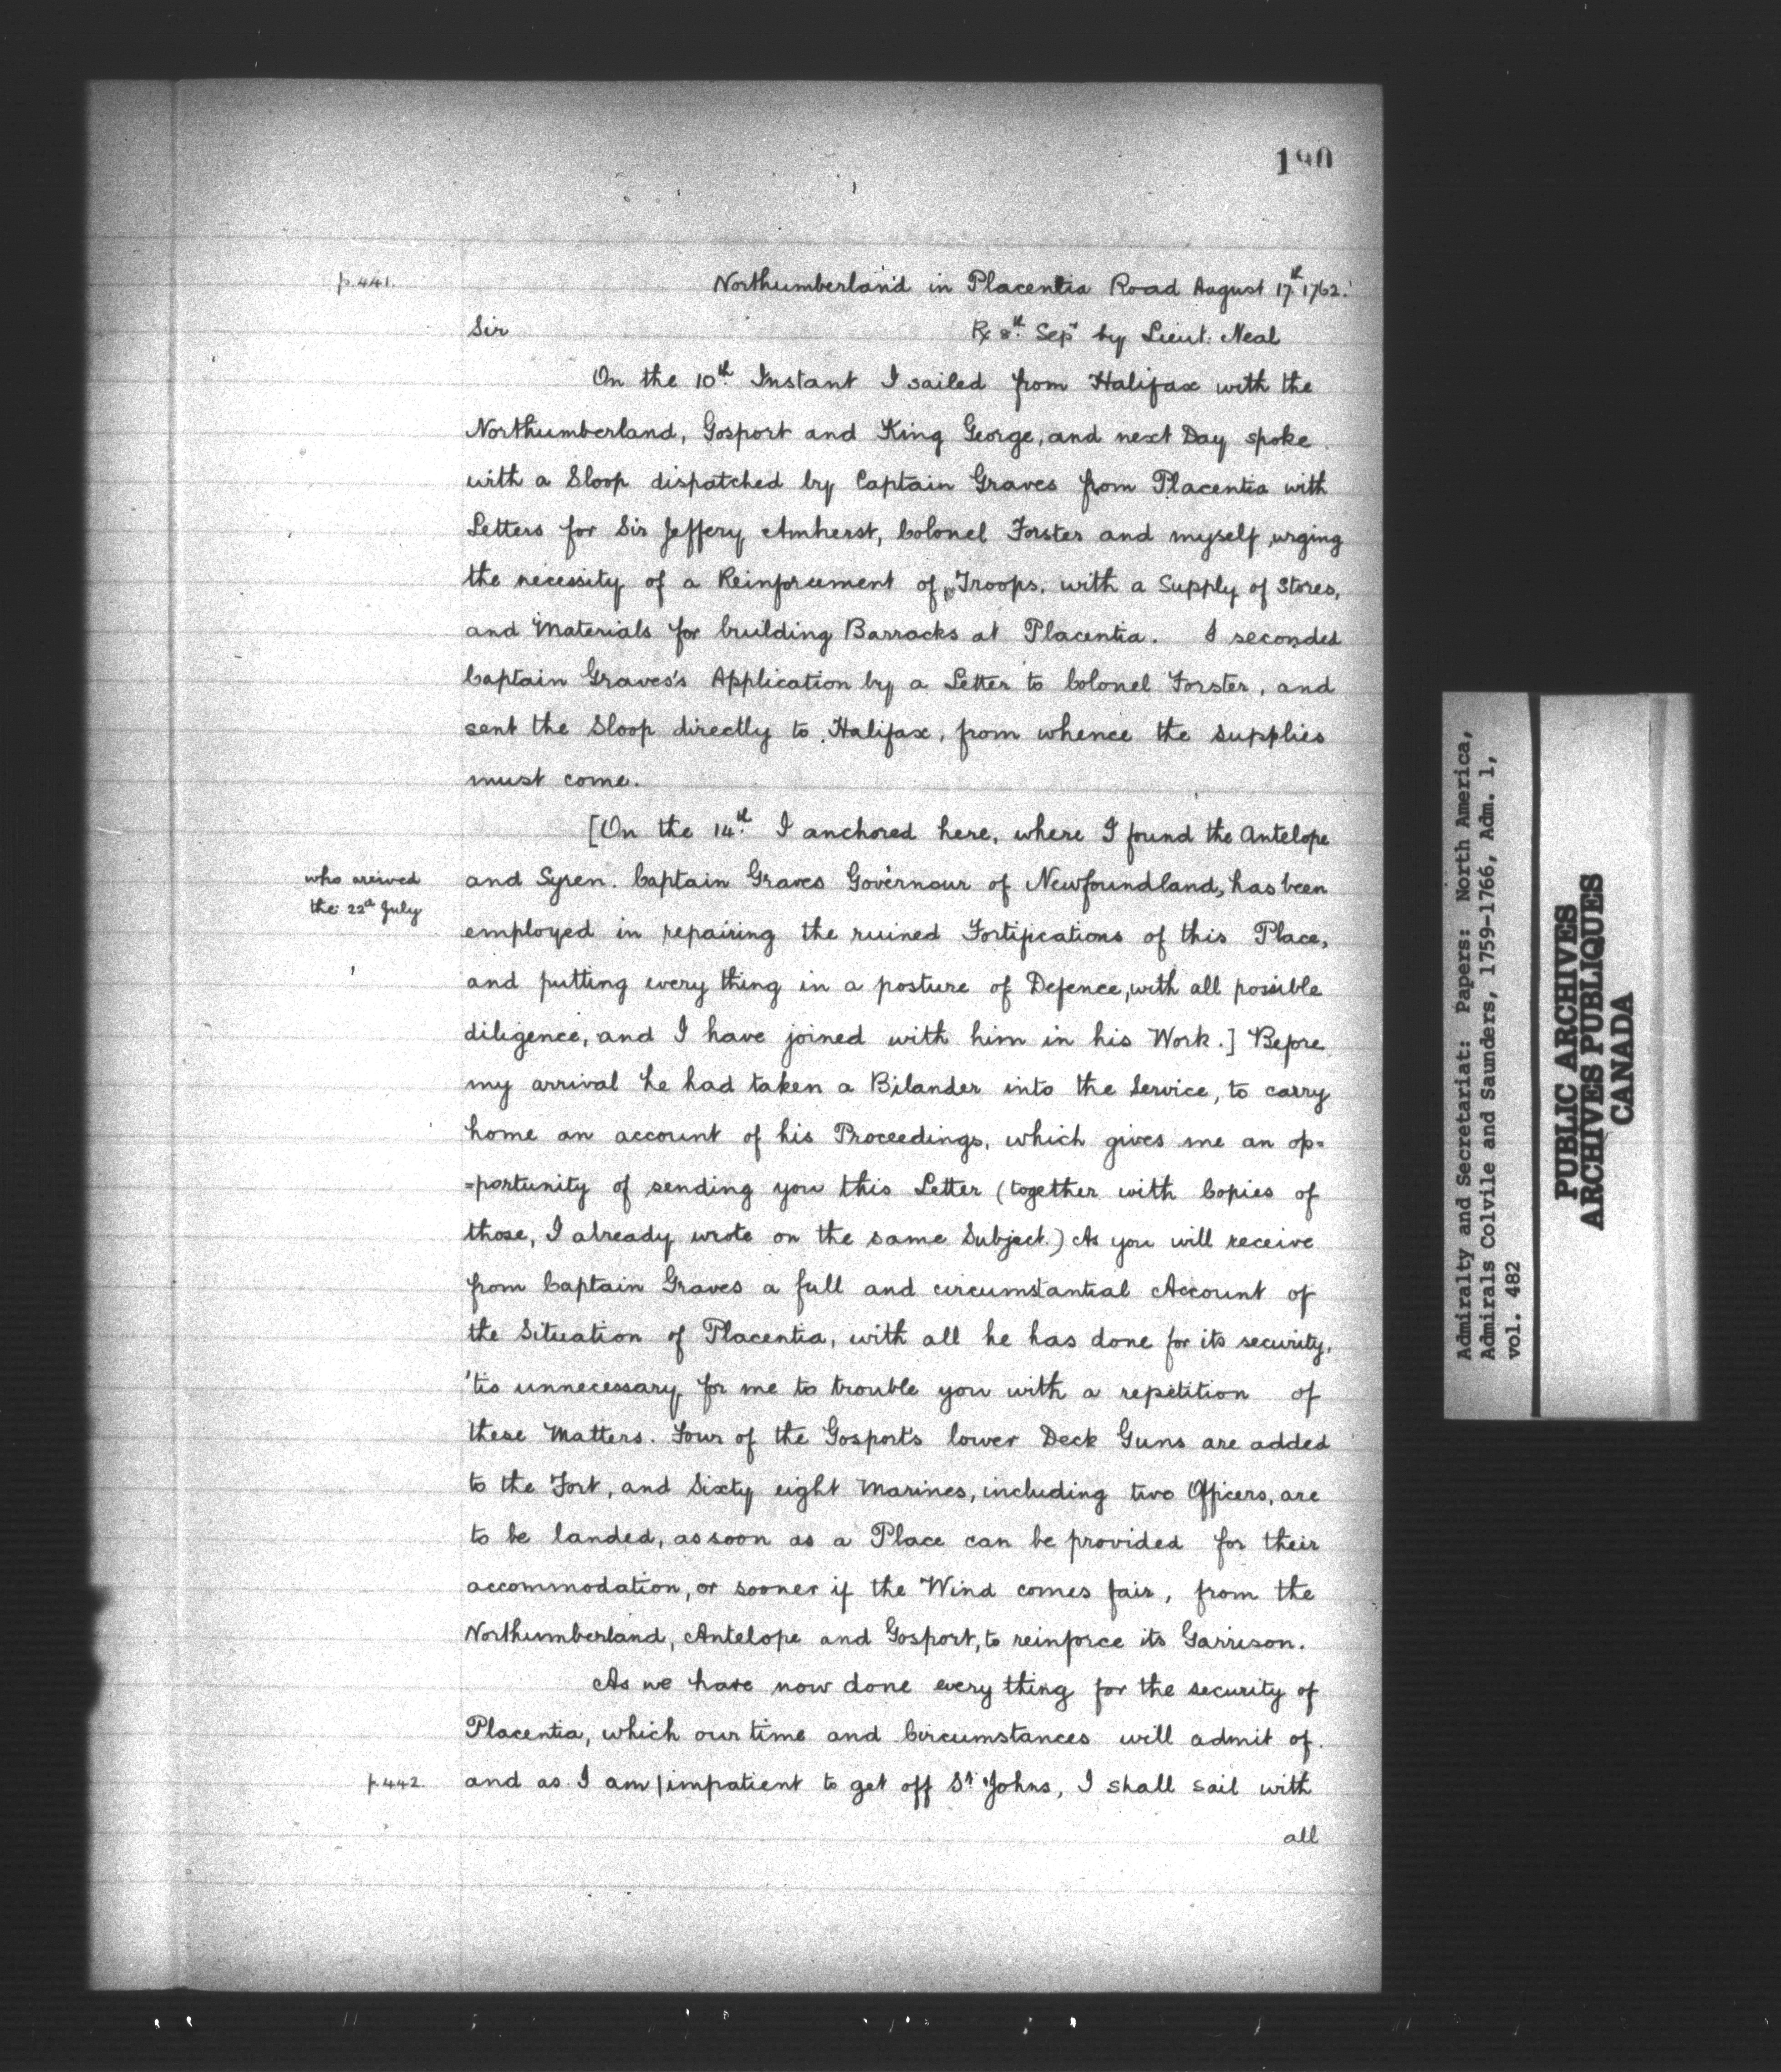 190
p.441.
Northumberland in Placentia Road August 17th 1762.
Sir
Rx 8th Sepr by Lieut. Neal
On the 10th Instant I sailed from Halifax with the
Northumberland, Gosport and King George, and next Day spoke
with a Sloop dispatched by Captain Graves from Placentia with
Letters for Sir Jeffery Amherst, Colonel Forster and myself urging
the necessity of a Reinforcement of Troops, with a Supply of Stores,
and Materials for building Barracks at Placentia. I seconded
Captain Graves's Application by a Letter to Colonel Forster, and
sent the Sloop directly to Halifax, from whence the supplies
must come.
[On the 14th I anchored here, where I found the Antelope
who arrived
the 22d July
and Syren. Captain Graves Governour of Newfoundland, has been
employed in repairing the ruined Fortifications of this Place,
and putting every thing in a posture of Defence, with all possible
diligence, and I have joined with him in his Work.] Before
my arrival he had taken a Bilander into the Service, to carry
home an account of his Proceedings, which gives me an op=
=portunity of sending you this Letter (together with Copies of
those, I already wrote on the same Subject.) As you will receive
from Captain Graves a full and circumstantial Account of
the Situation of Placentia, with all he has done for its security,
'tis unnecessary for me to trouble you with a repetition of
these Matters. Four of the Gosport's lower Deck Guns are added
to the Fort, and Sixty eight Marines, including two Officers, are
to be landed, as soon as a Place can be provided for their
accommodation, or sooner if the Wind comes fair, from the
Northumberland, Antelope and Gosport, to reinforce its Garrison.
As we have now done every thing for the security of
Placentia, which our time and Circumstances will admit of
p.442.
and as I am | impatient to get off St Johns, I shall sail with
all
Admiralty and Secretariat: Papers: North America,
Admirals Colvile and Saunders, 1759-1766, Adm. 1,
vol. 482
PUBLIC ARCHIVES
ARCHIVES PUBLIQUES
CANADA